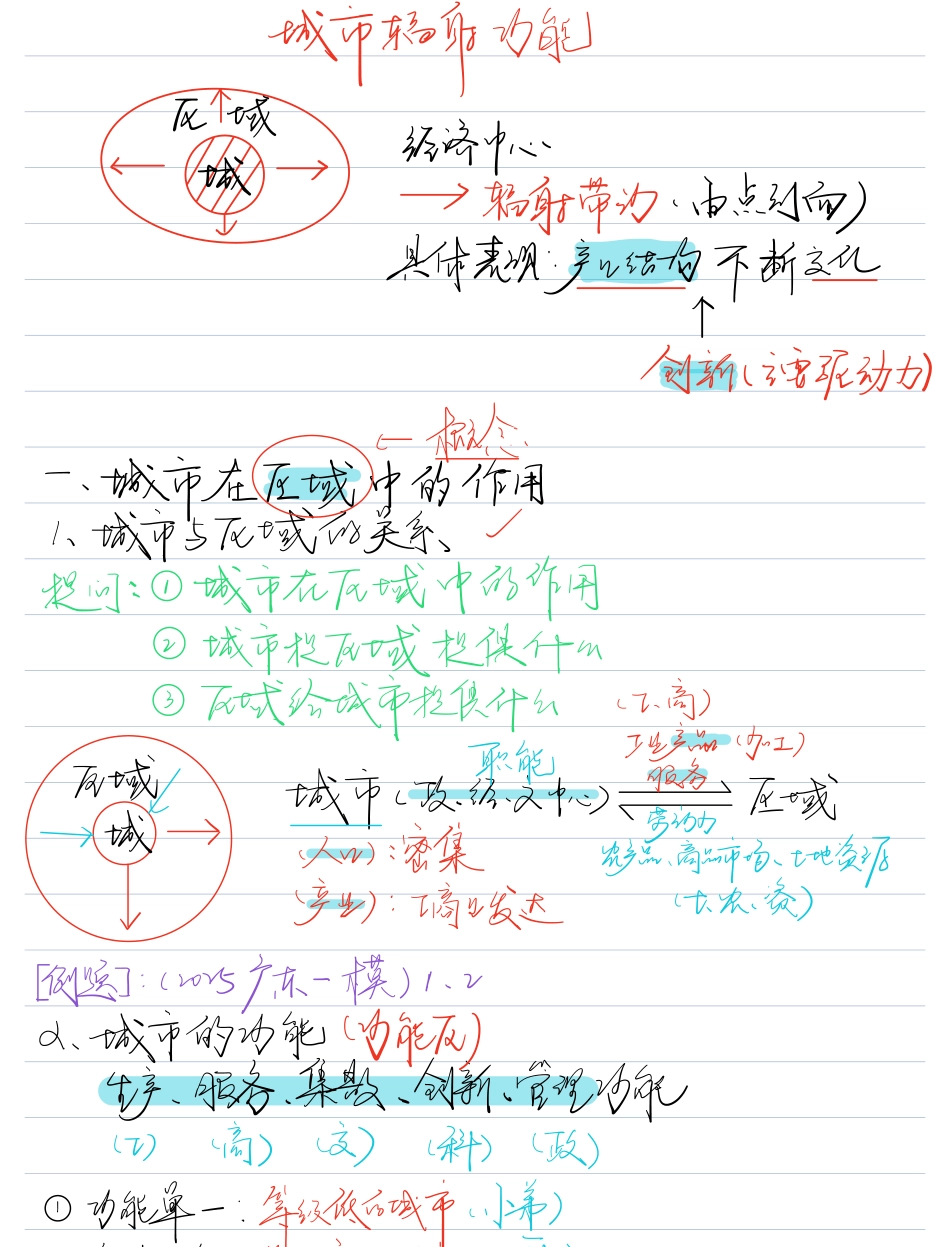 城市辐射功能
区域
城
经济中心
→ 辐射带动(由点到面)
具体表现:产业结构不断变化
↑
创新(主要驱动力)
← 概念
一、城市在区域中的作用
1、城市与区域的关系、✓
提问:① 城市在区域中的作用
② 城市提区域提供什么
③ 区域给城市提供什么
(工、商)
工业产品(加工)
职能
服务
区域
城
城市(政、经、文中心) 区域
劳动力
(人口):密集
农产品、商品市场、土地资源
(产业):工商业发达
(土、农、资)
[例题]:(2025广东一模)1、2
2、城市的功能(功能区)
生产、服务、集散、创新、管理功能
(工) (商) (交) (科) (政)
① 功能单一:等级低的城市(小弟)